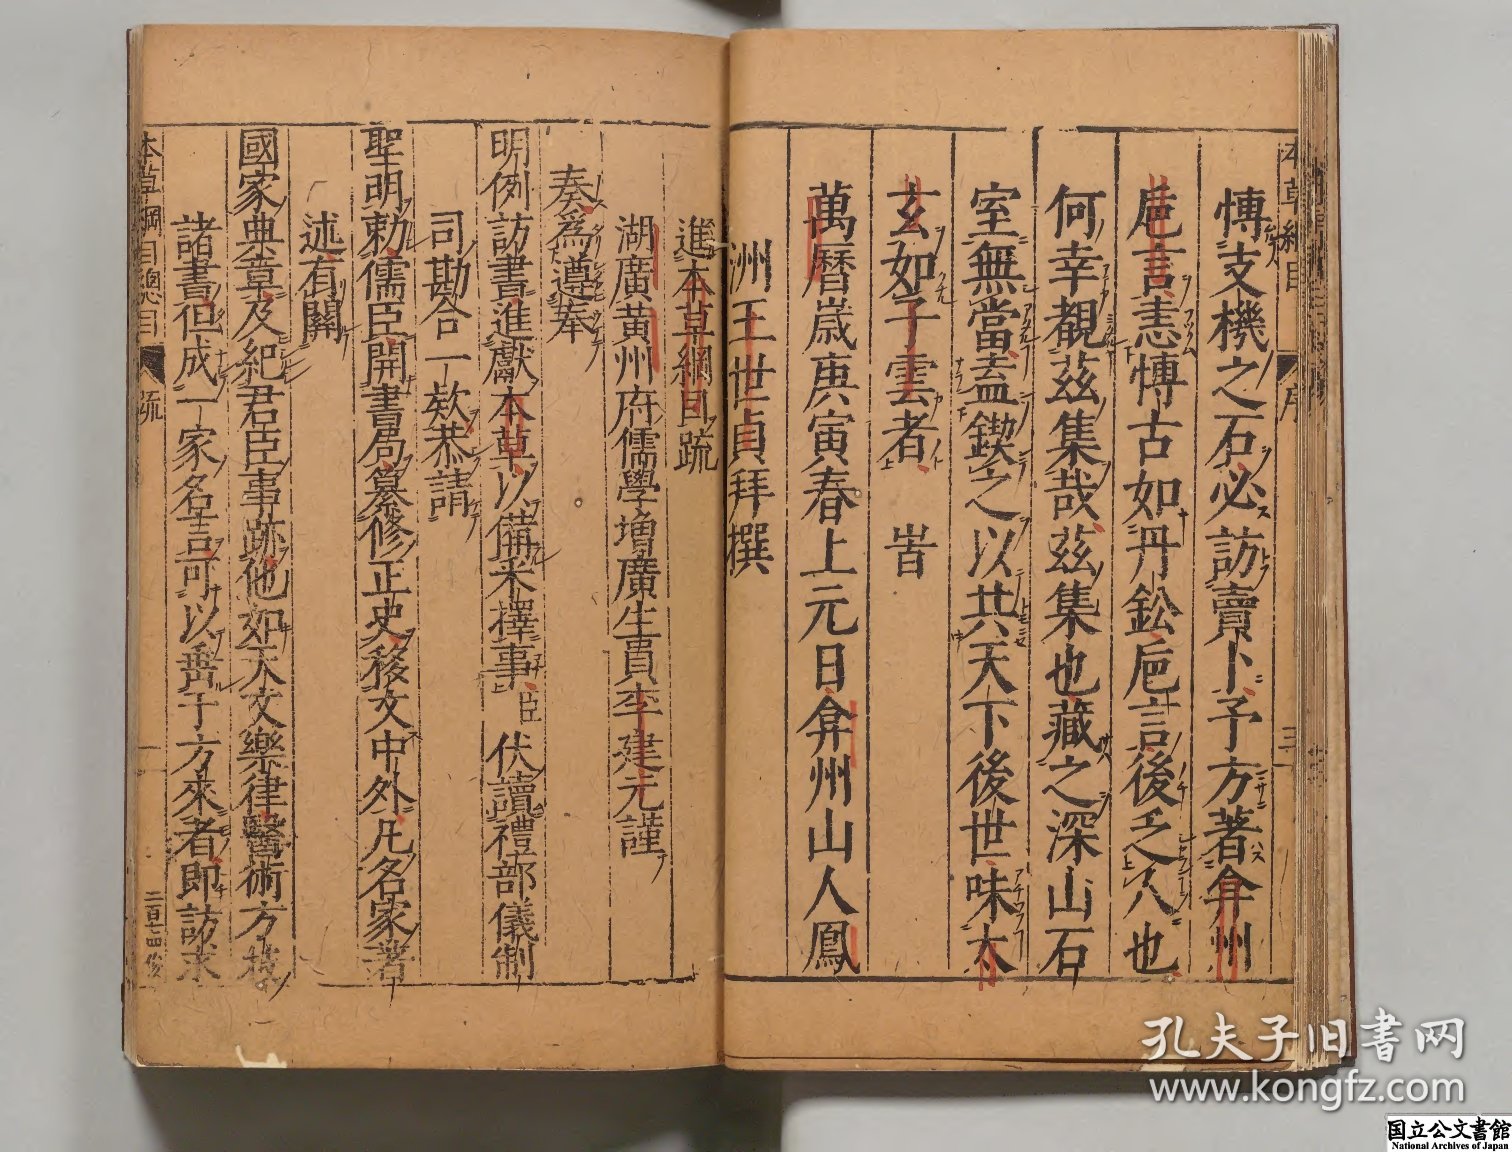 慱支機之石必訪賣卜予方著弇州
巵言恚慱古如丹鈆巵言後乏人也
何幸覩茲集哉茲集也藏之深山石
室無當盍鍥之以共天下後世味太
玄如子雲者 旹
萬曆歲庚寅春上元日弇州山人鳳
洲王世貞拜撰
進本草綱目疏
湖廣黃州府儒學增廣生員李建元謹
奏爲遵奉
明例訪書進獻本草以備采擇事臣伏讀禮部儀制
司勘合一欵恭請
聖明勅儒臣開書局纂修正史移文中外凡名家著
述有關
國家典章及紀君臣事跡他如天文樂律醫術方技
諸書但成一家名言可以垂于方來者即訪求
本草綱目總目 疏 一 二百七四
孔夫子旧書网
www.kongfz.com
国立公文書館
National Archives of Japan